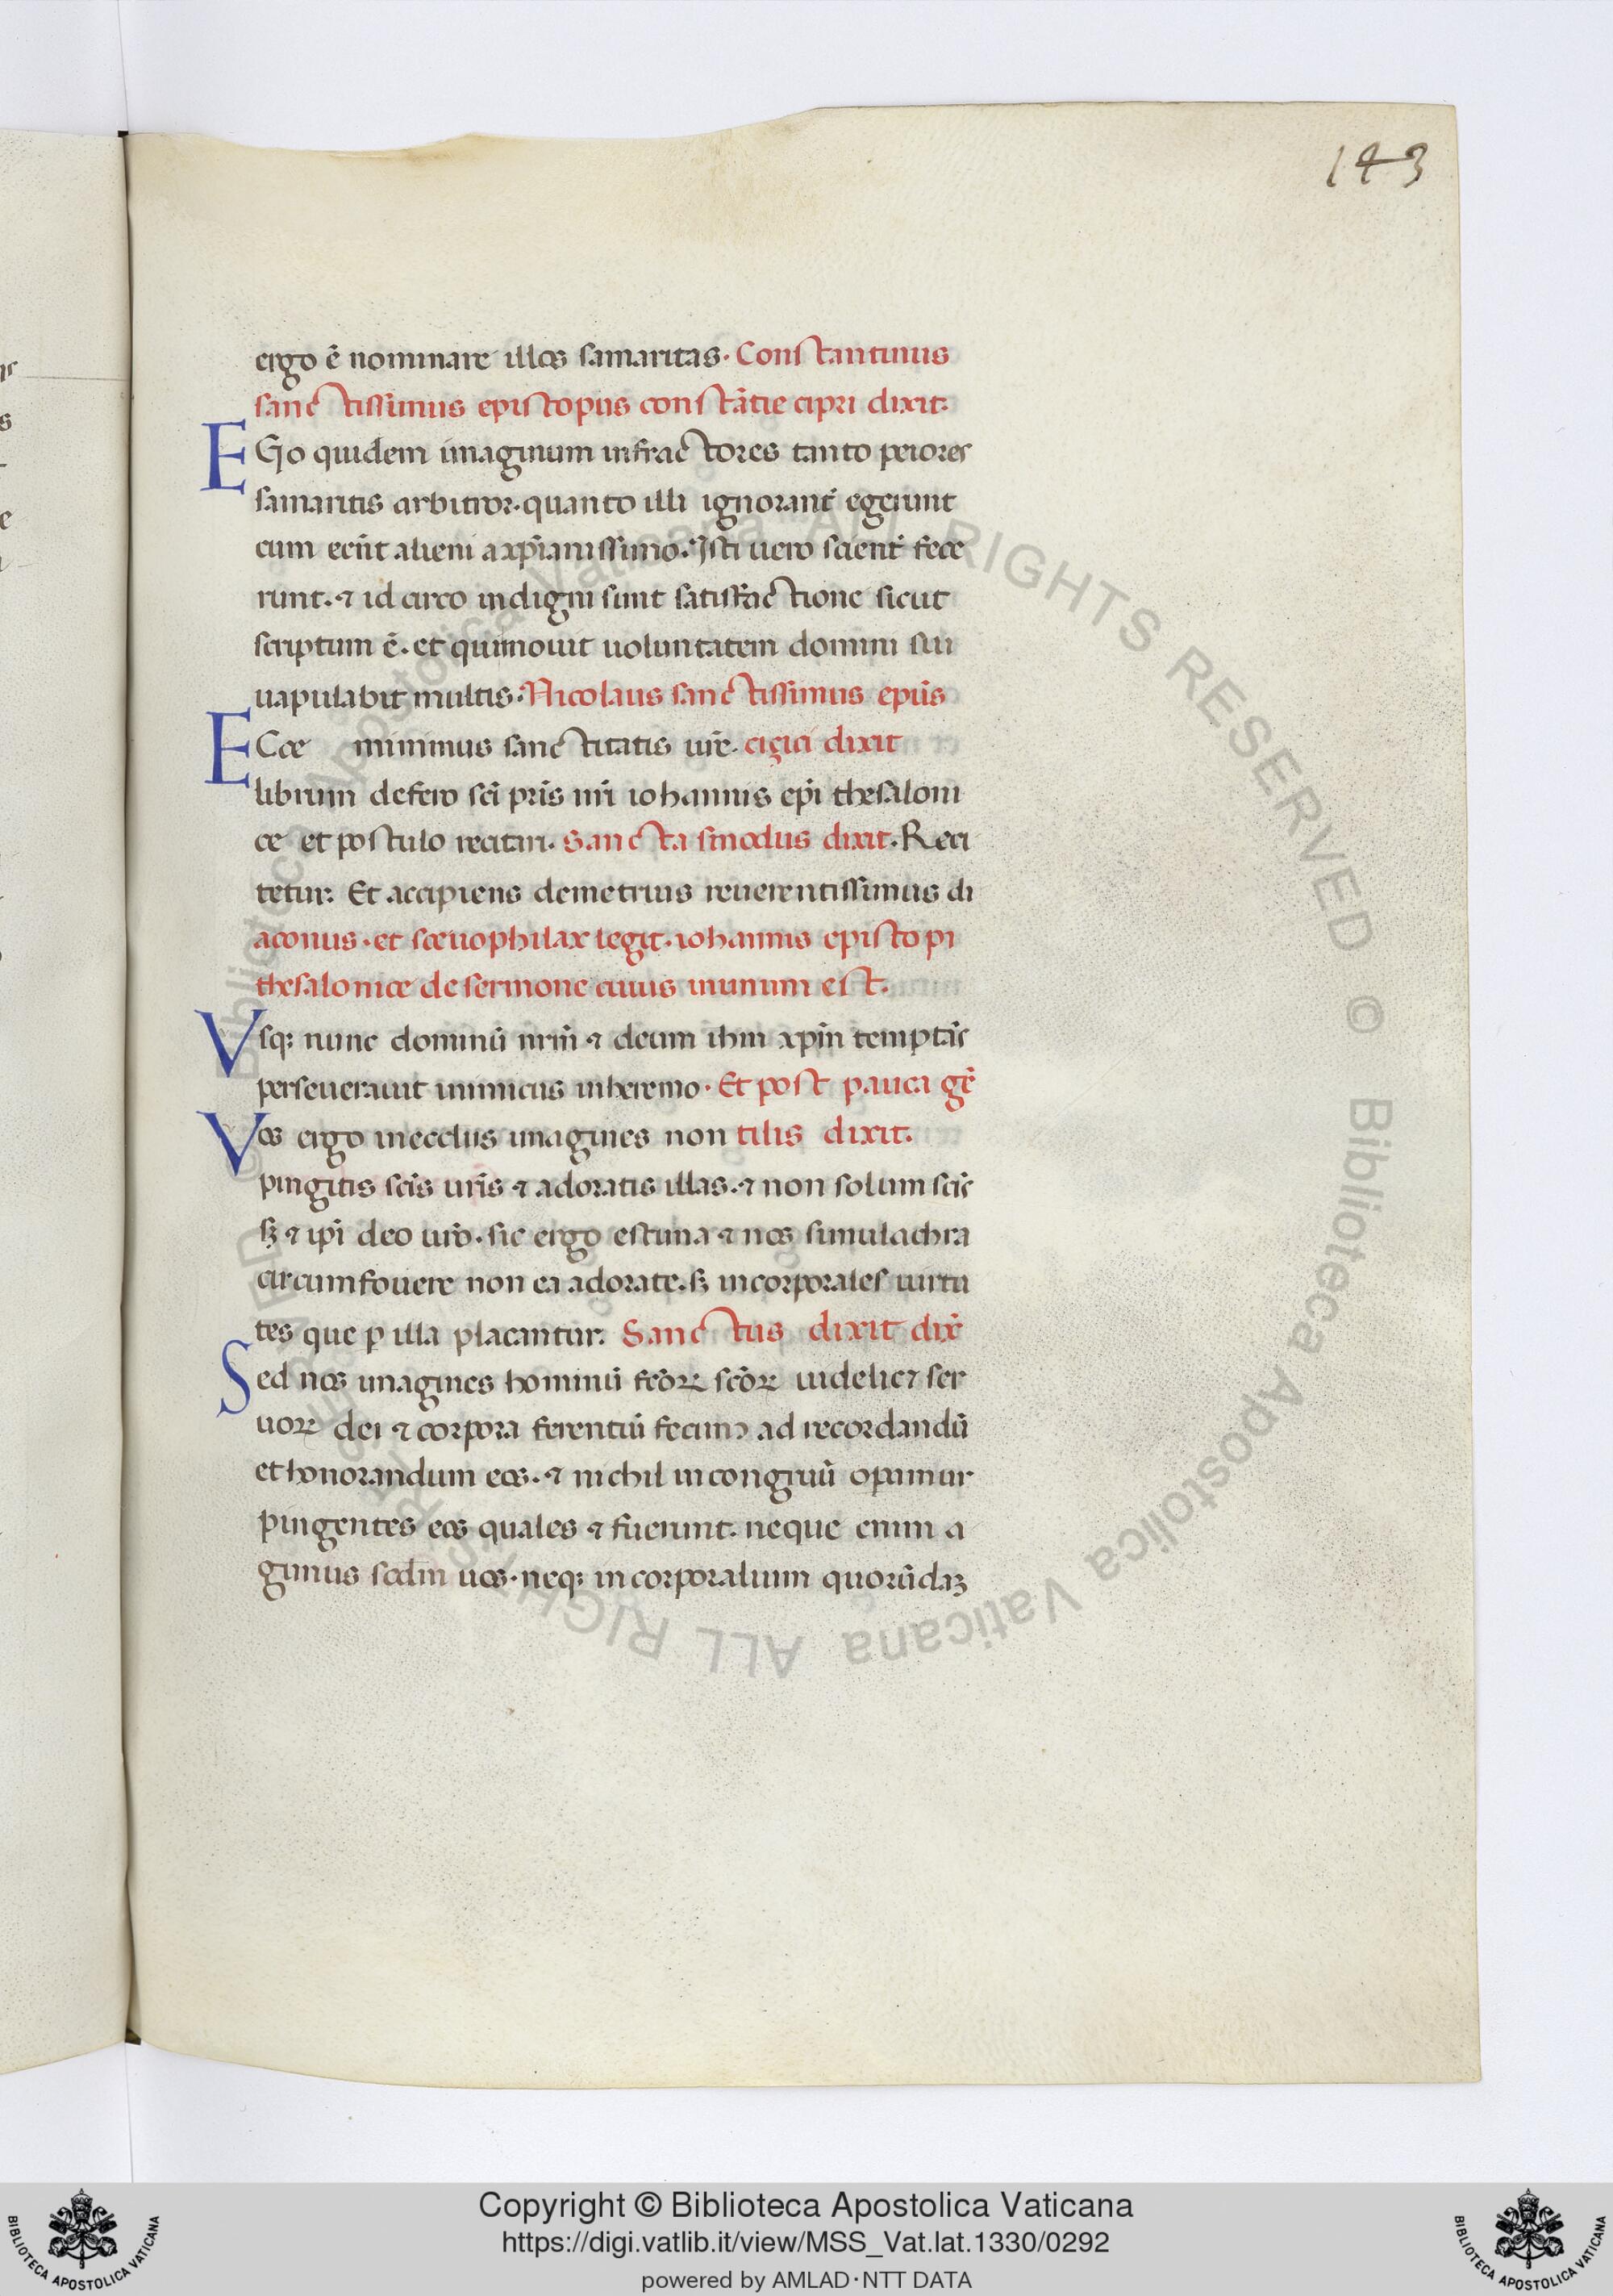 143
ergo ē nominare illos samaritas. Constantinus
sanctissimus episcopus constātie cipri dixit.
EGo quidem imaginum infractores tanto peiores
samaritis arbitror. quanto illi ignorant̄ egerunt
cum eēnt alieni a xp̄ianissimo. Isti uero scient̄ fece
runt. ⁊ id circo indigni sunt satisfactione sicut
scriptum ē. et qui nouit uoluntatem domini sui
uapulabit multis. Nicolaus sanctissimus ep̄us
ECce minimus sanctitatis ur̄e. cizici dixit
librum defero sc̄i pr̄is nr̄i iohannis ep̄i thesaloni
ce et postulo recitari. Sancta sinodus dixit. Reci
tetur. Et accipiens demetrius reuerentissimus di
aconus. et sceuophilax legit. iohannis episcopi
thesalonice de sermone cuius inunum est.
Vsq; nunc dominū nr̄m ⁊ deum ihm xp̄m temptās
perseuerauit inimicus in heremo. Et post pauca gē
Vos ergo in ecclīis imagines non tilis dixit.
pingitis sc̄is ur̄is ⁊ adoratis illas. ⁊ non solum sc̄is
sꝫ ⁊ ip̄i deo ur̄o. sic ergo estima ⁊ nos simulachra
circumfouere non ea adorate. sꝫ incorporales uirtu
tes que ꝑ illa placantur. Sanctus dixit dix̄
Sed nos imagines hominū fcōꝝ scōꝝ uidelicꝫ ser
uoꝝ dei ⁊ corpora ferentiū fecimꝰ ad recordandū
et honorandum eos. ⁊ nichil incongruū oꝑamur
pingentes eos quales ⁊ fuerunt. neque enim a
gimus scd̄m uos. neq; incorporalium quorūdaꝫ
Copyright © Biblioteca Apostolica Vaticana
https://digi.vatlib.it/view/MSS_Vat.lat.1330/0292
powered by AMLAD · NTT DATA
BIBLIOTECA APOSTOLICA VATICANA
BIBLIOTECA APOSTOLICA VATICANA